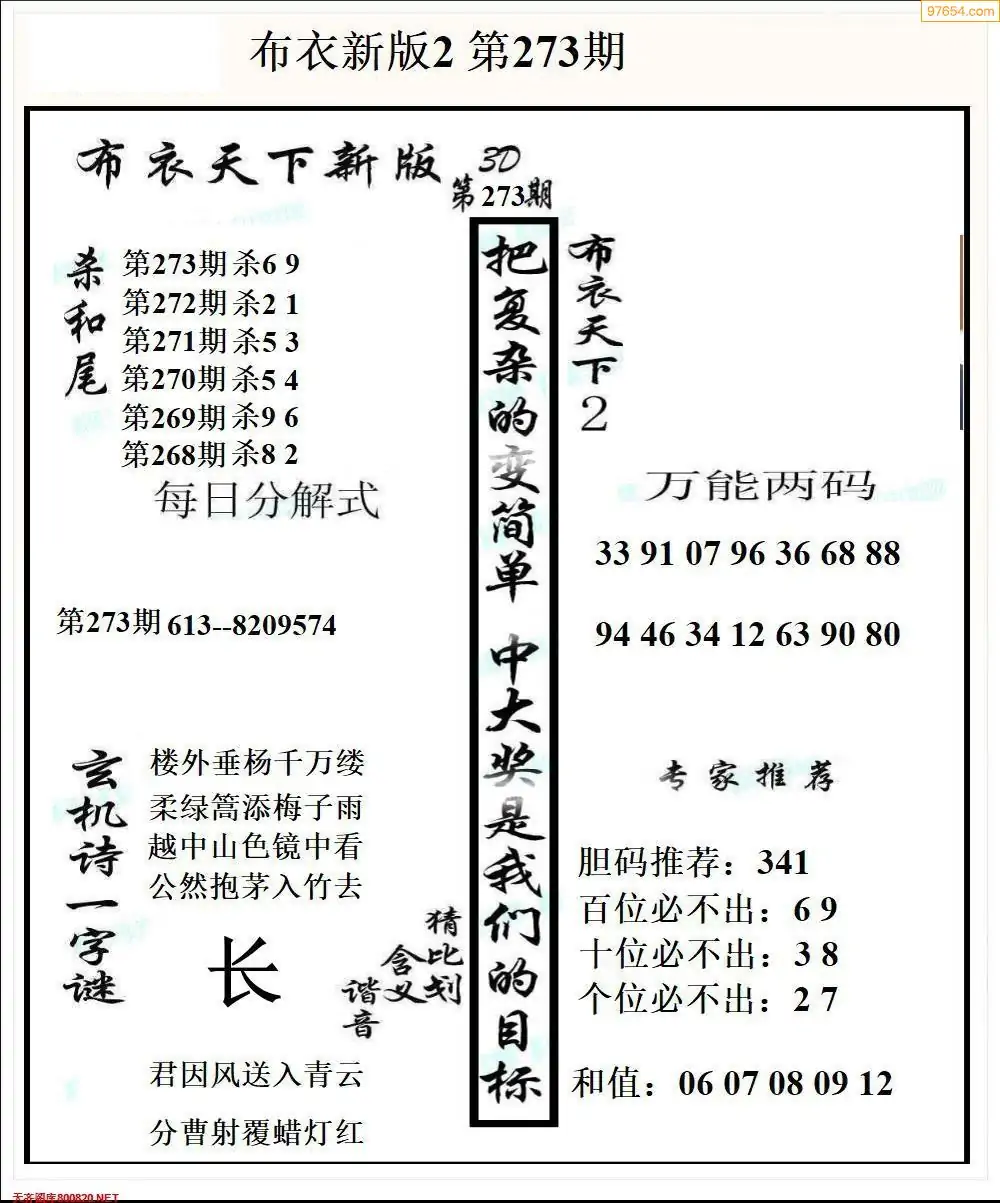 97654.com
布衣新版2 第273期
布衣天下新版
3D
第273期
杀和尾
第273期杀6 9
第272期杀2 1
第271期杀5 3
第270期杀5 4
第269期杀9 6
第268期杀8 2
每日分解式
第273期613--8209574
玄机诗一字谜
楼外垂杨千万缕
柔绿篙添梅子雨
越中山色镜中看
公然抱茅入竹去
长
猜比划
含义
谐音
君因风送入青云
分曹射覆蜡灯红
把复杂的变简单 中大奖是我们的目标
布衣天下2
万能两码
33 91 07 96 36 68 88
94 46 34 12 63 90 80
专家推荐
胆码推荐：341
百位必不出：6 9
十位必不出：3 8
个位必不出：2 7
和值：06 07 08 09 12
天齐图库800820.NET